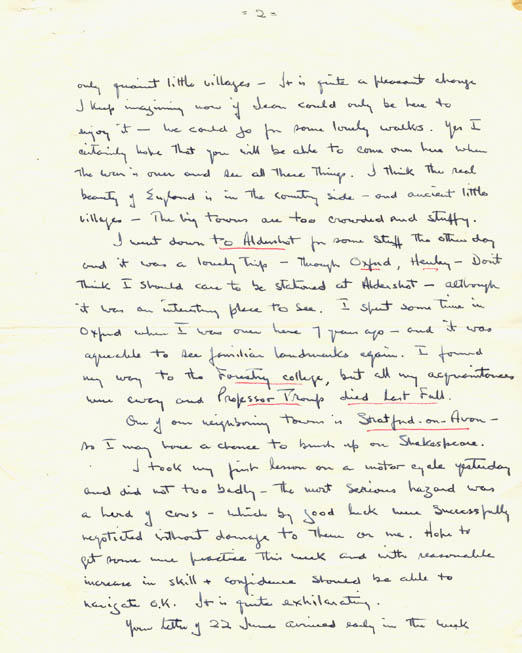 = 2 =
only quaint little villages - It is quite a pleasant change
I keep imagining now if Jean could only be here to
enjoy it - we could go for some lovely walks. Yes I
certainly hope that you will be able to come over here when
the war is over and see all these things. I think the real
beauty of England is in the country side - and ancient little
villages - The big towns are too crowded and stuffy.
I went down to Aldershot for some stuff the other day
and it was a lovely trip - through Oxford, Henley - Don't
think I should care to be stationed at Aldershot - although
it was an interesting place to see. I spent some time in
Oxford when I was over here 7 years ago - and it was
agreeable to see familiar landmarks again. I found
my way to the Forestry college, but all my acquaintances
were away and Professor Troup died last Fall.
One of our neighboring towns is Stratford-on-Avon -
so I may have a chance to brush up on Shakespeare.
I took my first lesson on a motor cycle yesterday
and did not too badly - the most serious hazard was
a herd of cows - which by good luck were successfully
negotiated without damage to them or me. Hope to
get some more practice this week and with reasonable
increase in skill + confidence should be able to
navigate O.K. It is quite exhilarating.
Your letter of 22 June arrived early in the week